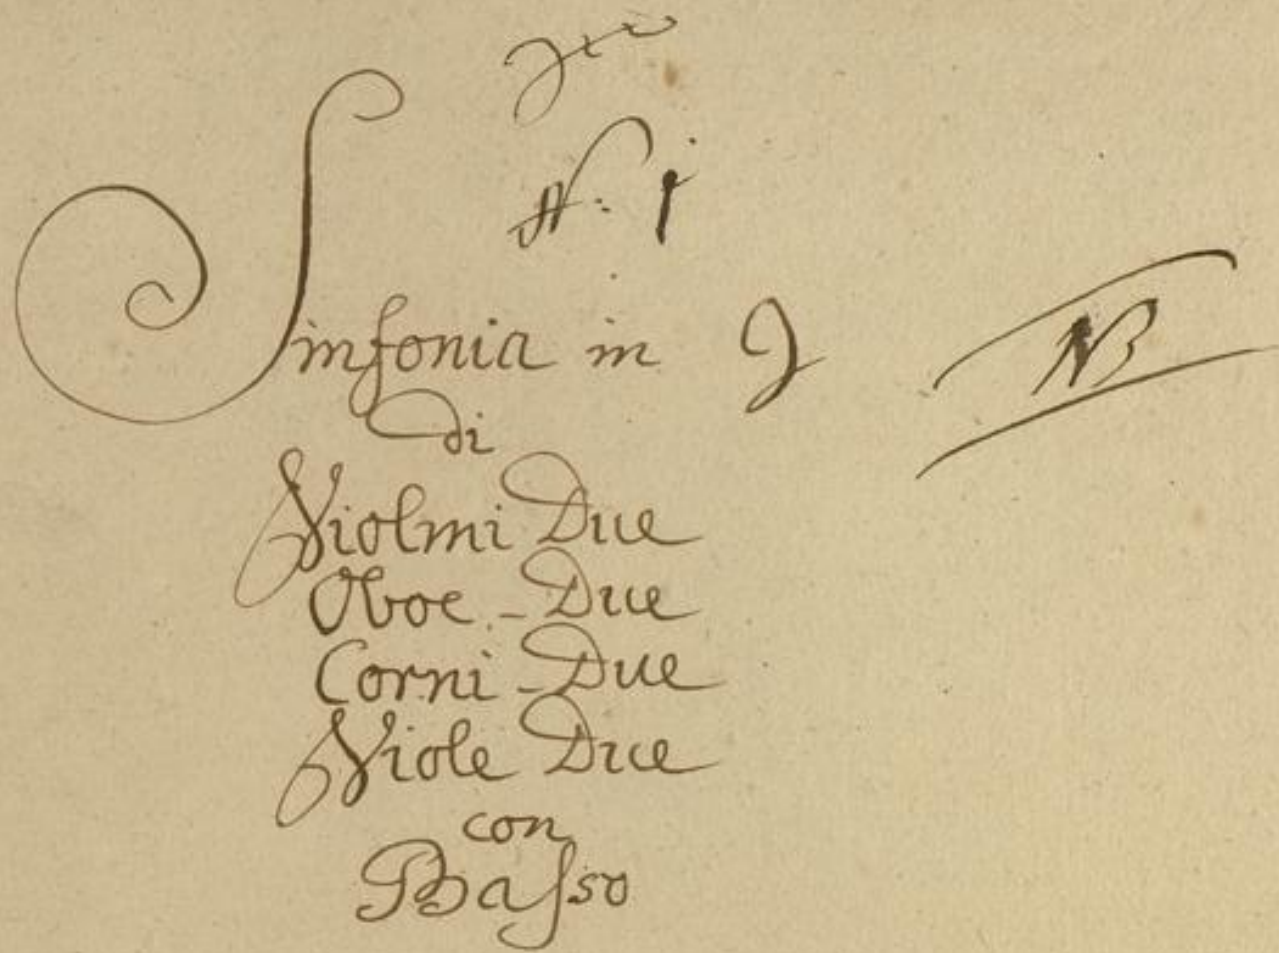 N: 1
Sinfonia in G NB
di
Violini Due
Oboe - Due
Corni - Due
Viole Due
con
Basso